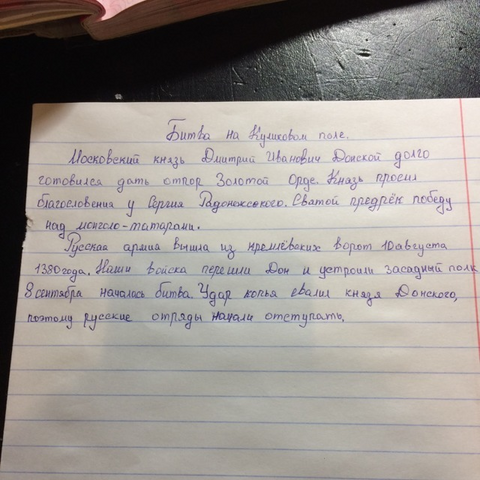 Битва на Куликовом поле.
Московский князь Дмитрий Иванович Донской долго
готовился дать отпор Золотой Орде. Князь просил
благословения у Сергия Радонежского. Святой предрёк победу
над монголо-татарами.
Русская армия вышла из кремлёвских ворот 10 августа
1380 года. Наши войска перешли Дон и устроили засадный полк.
8 сентября началась битва. Удар копья свалил князя Донского,
поэтому русские отряды начали отступать.